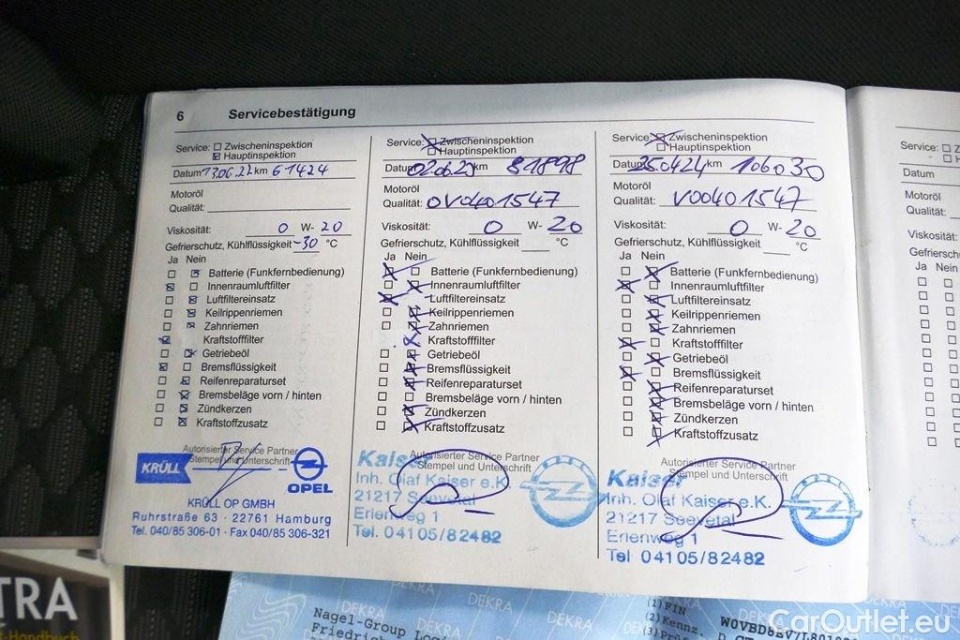 6 Servicebestätigung
Service: Zwischeninspektion
Hauptinspektion
Datum 13.06.22 km 61424
Motoröl
Qualität:
Viskosität: 0 W- 20
Gefrierschutz, Kühlflüssigkeit -30 °C
Ja Nein
Batterie (Funkfernbedienung)
Innenraumluftfilter
Luftfiltereinsatz
Keilrippenriemen
Zahnriemen
Kraftstofffilter
Getriebeöl
Bremsflüssigkeit
Reifenreparaturset
Bremsbeläge vorn / hinten
Zündkerzen
Kraftstoffzusatz
Autorisierter Service Partner
Stempel und Unterschrift
KRÜLL
OPEL
KRÜLL OP GMBH
Ruhrstraße 63 · 22761 Hamburg
Tel. 040/85 306-01 · Fax 040/85 306-321
Service: Zwischeninspektion
Hauptinspektion
Datum 02.06.23 km 81898
Motoröl
Qualität: 0V0401547
Viskosität: 0 W- 20
Gefrierschutz, Kühlflüssigkeit °C
Ja Nein
Batterie (Funkfernbedienung)
Innenraumluftfilter
Luftfiltereinsatz
Keilrippenriemen
Zahnriemen
Kraftstofffilter
Getriebeöl
Bremsflüssigkeit
Reifenreparaturset
Bremsbeläge vorn / hinten
Zündkerzen
Kraftstoffzusatz
Autorisierter Service Partner
Stempel und Unterschrift
Kaiser
Inh. Olaf Kaiser e.K.
21217 Seevetal
Erlenweg 1
Tel. 04105/82482
Service: Zwischeninspektion
Hauptinspektion
Datum 25.04.24 km 106030
Motoröl
Qualität: V00401547
Viskosität: 0 W- 20
Gefrierschutz, Kühlflüssigkeit °C
Ja Nein
Batterie (Funkfernbedienung)
Innenraumluftfilter
Luftfiltereinsatz
Keilrippenriemen
Zahnriemen
Kraftstofffilter
Getriebeöl
Bremsflüssigkeit
Reifenreparaturset
Bremsbeläge vorn / hinten
Zündkerzen
Kraftstoffzusatz
Autorisierter Service Partner
Stempel und Unterschrift
Kaiser
Inh. Olaf Kaiser e.K.
21217 Seevetal
Erlenweg 1
Tel 04105/82482
Service:
Datum
Motoröl
Qualität:
Viskosität:
Gefrierschutz
Ja Nein
TRA
Handbuch
DEKRA DEKRA DEKRA DEKRA
Nagel-Group
Friedrich
(1) FIN
(2) Kennz.
CarOutlet.eu